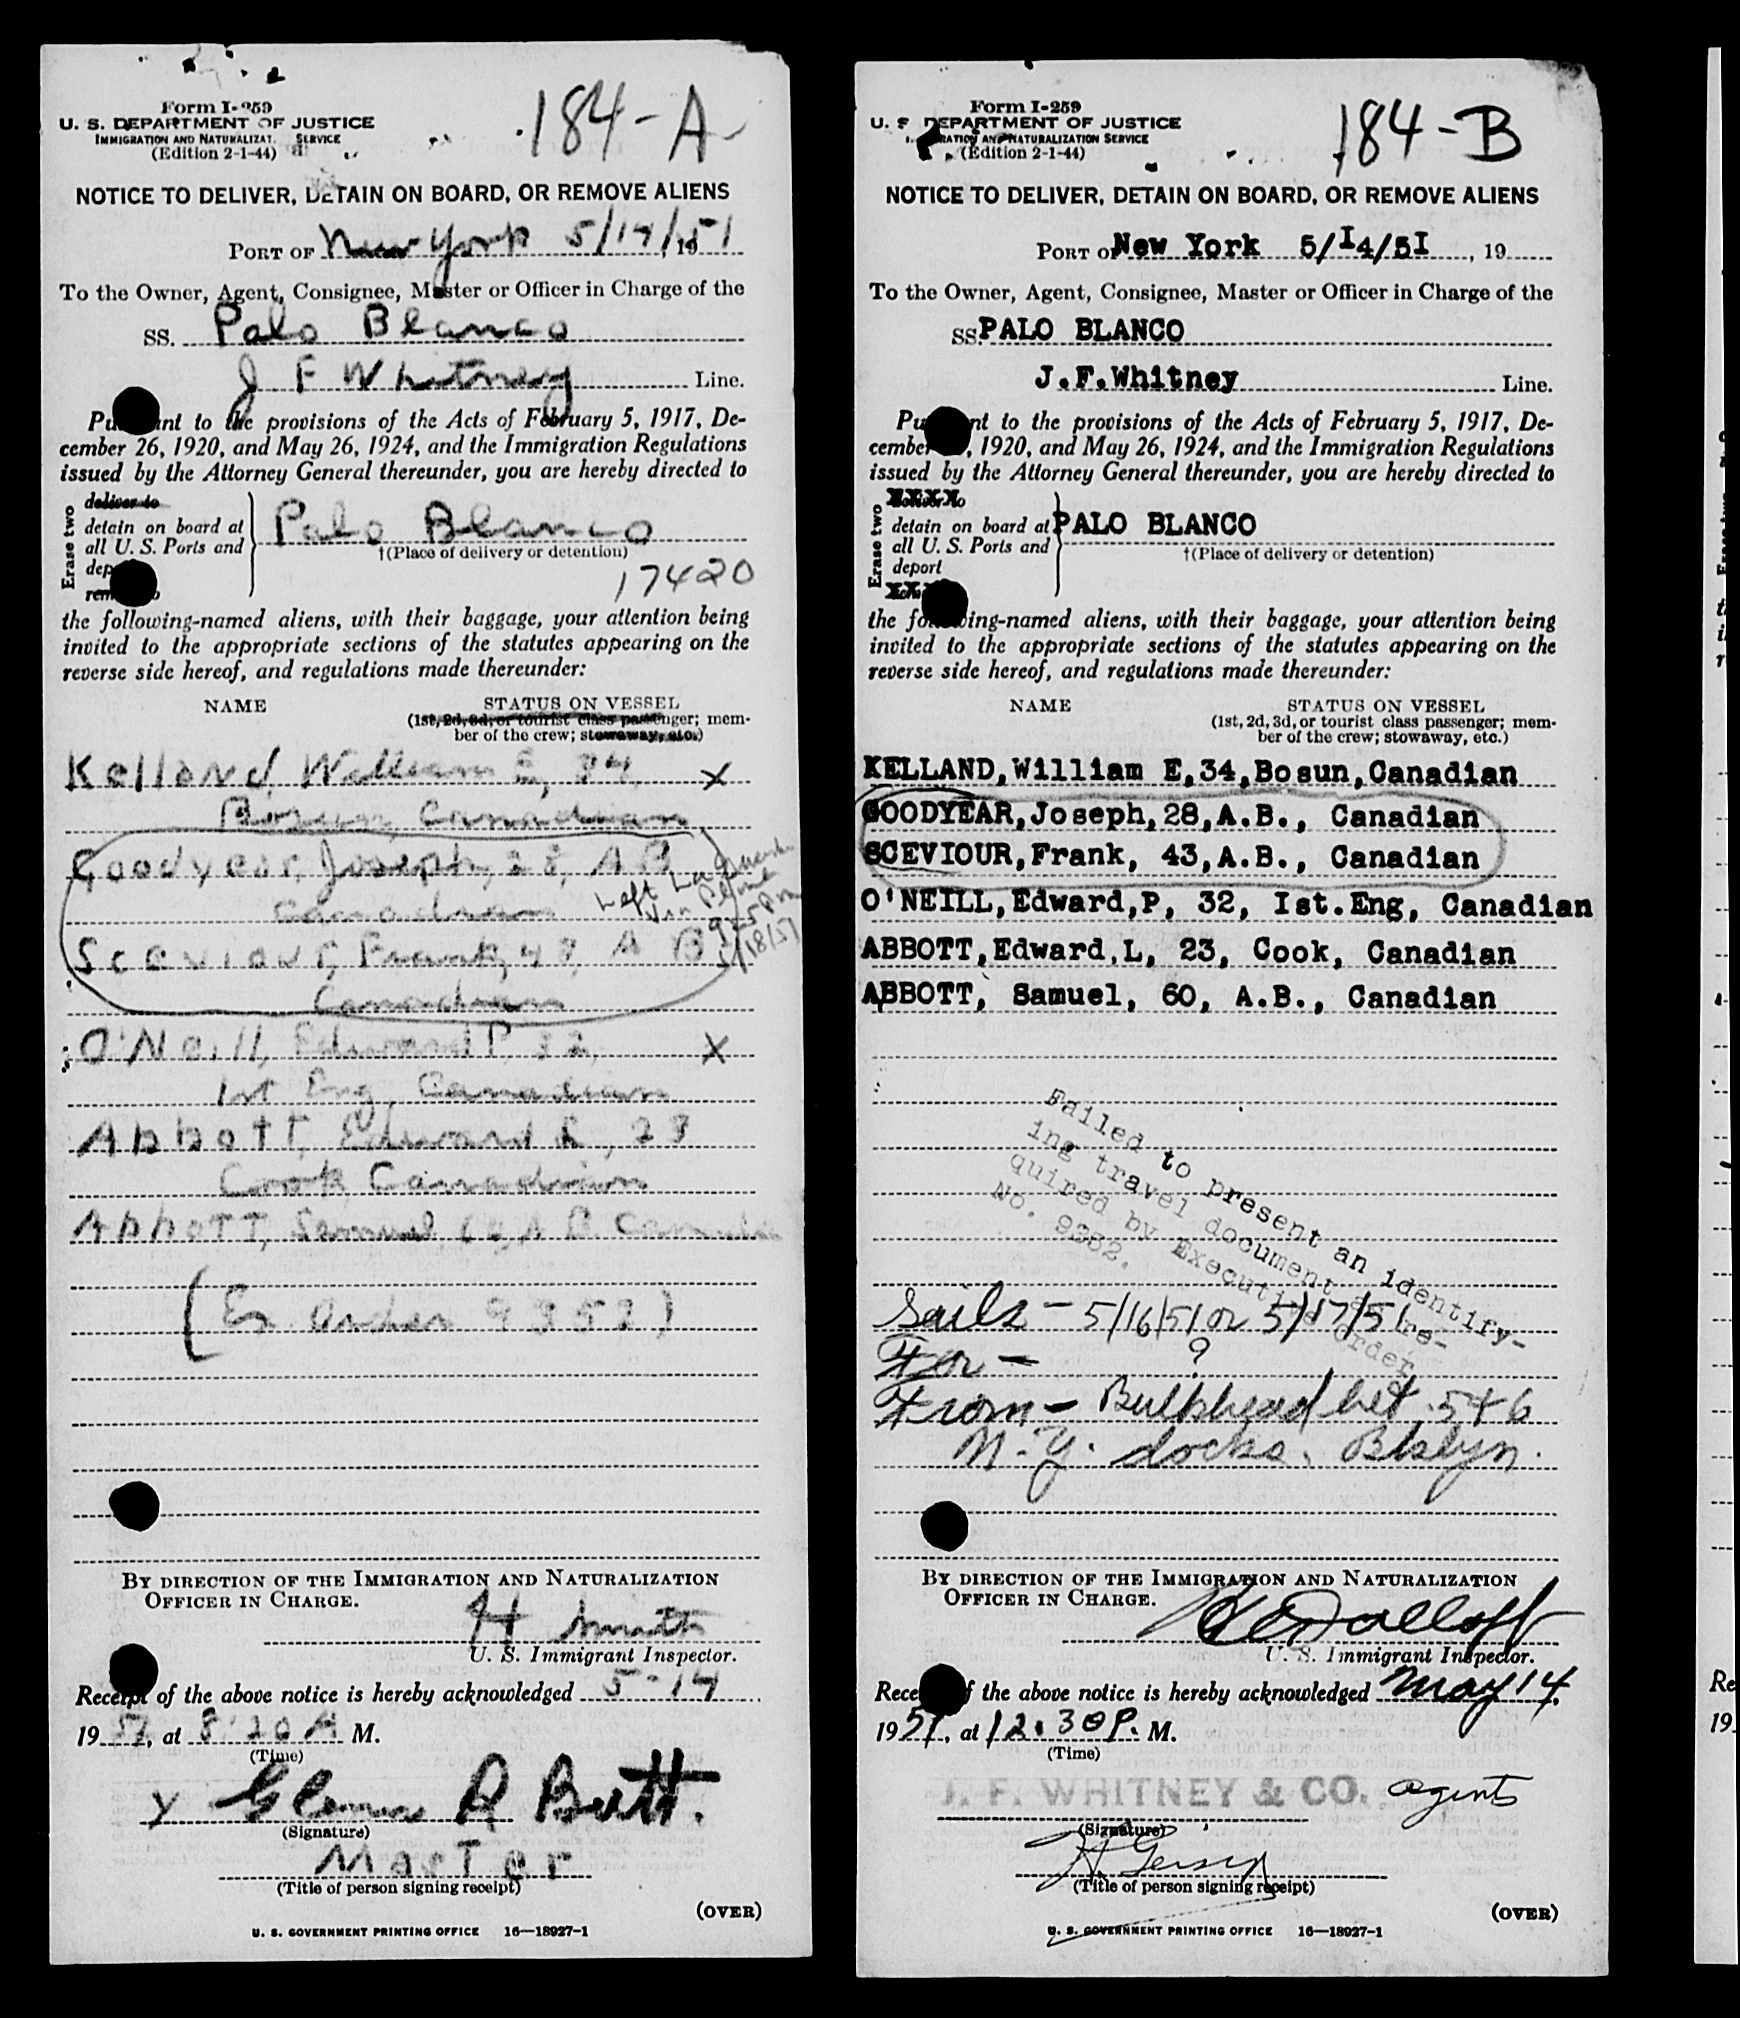 Form I-259
U. S. DEPARTMENT OF JUSTICE
IMMIGRATION AND NATURALIZAT. SERVICE
(Edition 2-1-44)
184-A
NOTICE TO DELIVER, DETAIN ON BOARD, OR REMOVE ALIENS
PORT OF New York 5/14/1951
To the Owner, Agent, Consignee, Master or Officer in Charge of the
SS. Palo Blanco
J F Whitney Line.
Pu nt to the provisions of the Acts of February 5, 1917, De-
cember 26, 1920, and May 26, 1924, and the Immigration Regulations
issued by the Attorney General thereunder, you are hereby directed to
Erase two
deliver to
detain on board at
all U. S. Ports and
dep
rem
Palo Blanco
†(Place of delivery or detention)
17420
the following-named aliens, with their baggage, your attention being
invited to the appropriate sections of the statutes appearing on the
reverse side hereof, and regulations made thereunder:
NAME STATUS ON VESSEL
(1st, 2d, 3d, or tourist class passenger; mem-
ber of the crew; stowaway, etc.)
Kelland, William E, 34 X
Bosun, Canadian
Goodyear, Joseph, 28, A B
Canadian
Left 
9 5/18/51
Sceviour, Frank, 43, A B
Canadian
O'Neill, Edward P, 32, X
1st Eng, Canadian
Abbott, Edward L, 23
Cook Canadian
Abbott, Samuel 60 A B
(Ex Order 9352)
BY DIRECTION OF THE IMMIGRATION AND NATURALIZATION
OFFICER IN CHARGE.
H Smith
U. S. Immigrant Inspector.
Receipt of the above notice is hereby acknowledged 5-14
1951, at 8:20 A M.
(Time)
Butt.
(Signature)
Master
(Title of person signing receipt)
(OVER)
U. S. GOVERNMENT PRINTING OFFICE 16—18927-1
Form I-259
U. S. DEPARTMENT OF JUSTICE
RATION AND NATURALIZATION SERVICE
(Edition 2-1-44)
184-B
NOTICE TO DELIVER, DETAIN ON BOARD, OR REMOVE ALIENS
PORT OF New York 5/I4/5I, 19
To the Owner, Agent, Consignee, Master or Officer in Charge of the
SS PALO BLANCO
J.F.Whitney Line.
Pu nt to the provisions of the Acts of February 5, 1917, De-
cember , 1920, and May 26, 1924, and the Immigration Regulations
issued by the Attorney General thereunder, you are hereby directed to
Erase two
XXXX
detain on board at
all U. S. Ports and
deport
PALO BLANCO
†(Place of delivery or detention)
the following-named aliens, with their baggage, your attention being
invited to the appropriate sections of the statutes appearing on the
reverse side hereof, and regulations made thereunder:
NAME STATUS ON VESSEL
(1st, 2d, 3d, or tourist class passenger; mem-
ber of the crew; stowaway, etc.)
KELLAND,William E,34,Bosun,Canadian
GOODYEAR,Joseph,28,A.B., Canadian
SCEVIOUR,Frank, 43,A.B., Canadian
O'NEILL,Edward,P, 32, Ist.Eng, Canadian
ABBOTT,Edward,L, 23, Cook, Canadian
ABBOTT, Samuel, 60, A.B., Canadian
Failed to present an identify-
ing travel document as re-
quired by Executive Order
No. 9352.
Sails - 5/16/51 or 5/17/51
For - ?
From - Bulkhead bet. 5+6
N.Y. docks. Bklyn.
BY DIRECTION OF THE IMMIGRATION AND NATURALIZATION
OFFICER IN CHARGE.
U. S. Immigrant Inspector.
Rece f the above notice is hereby acknowledged May 14
1951, at 12.30P. M.
(Time)
J. F. WHITNEY & CO. agents
(Signature)
(Title of person signing receipt)
(OVER)
U. S. GOVERNMENT PRINTING OFFICE 16—18927-1
Re
19